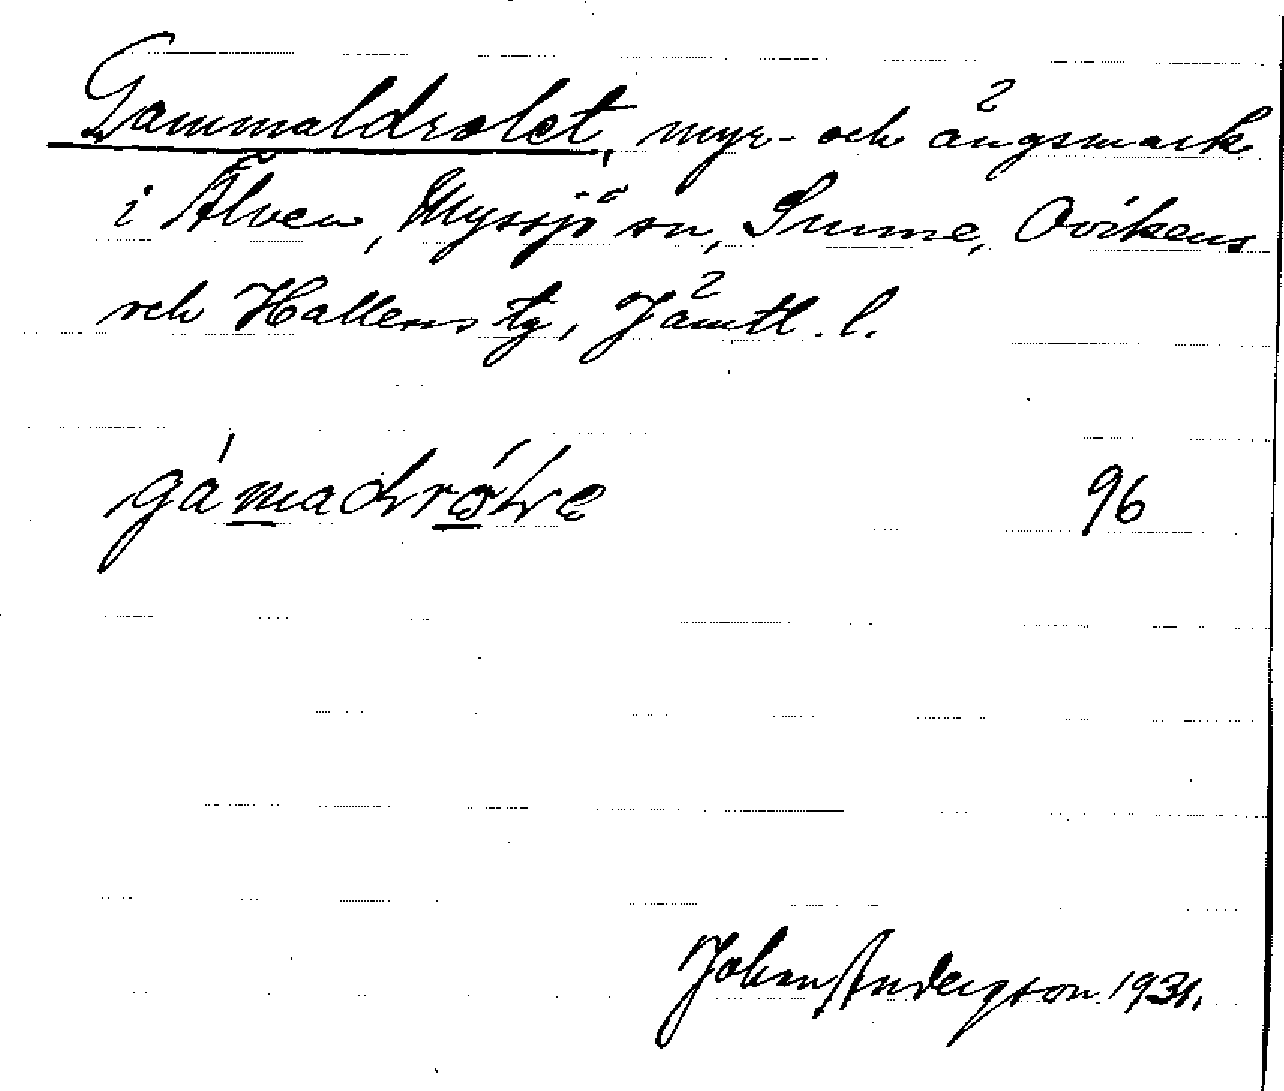 Gammaldrolet, myr- och ängsmark
i Älven, Myssjö sn, Sunne, Ovikens
och Hallens tg, Jämtl. l.
96
Johan Anderson 1931.